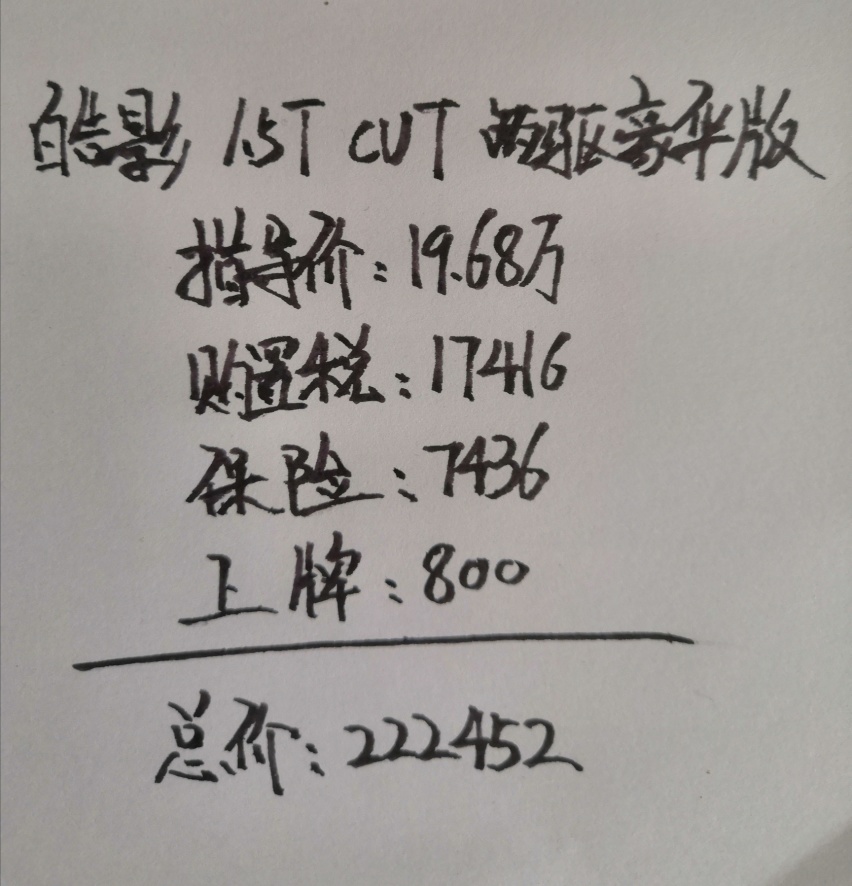 皓影 1.5T CUT 两驱豪华版
指导价：19.68万
购置税：17416
保险：7436
上牌：800
总价：222452